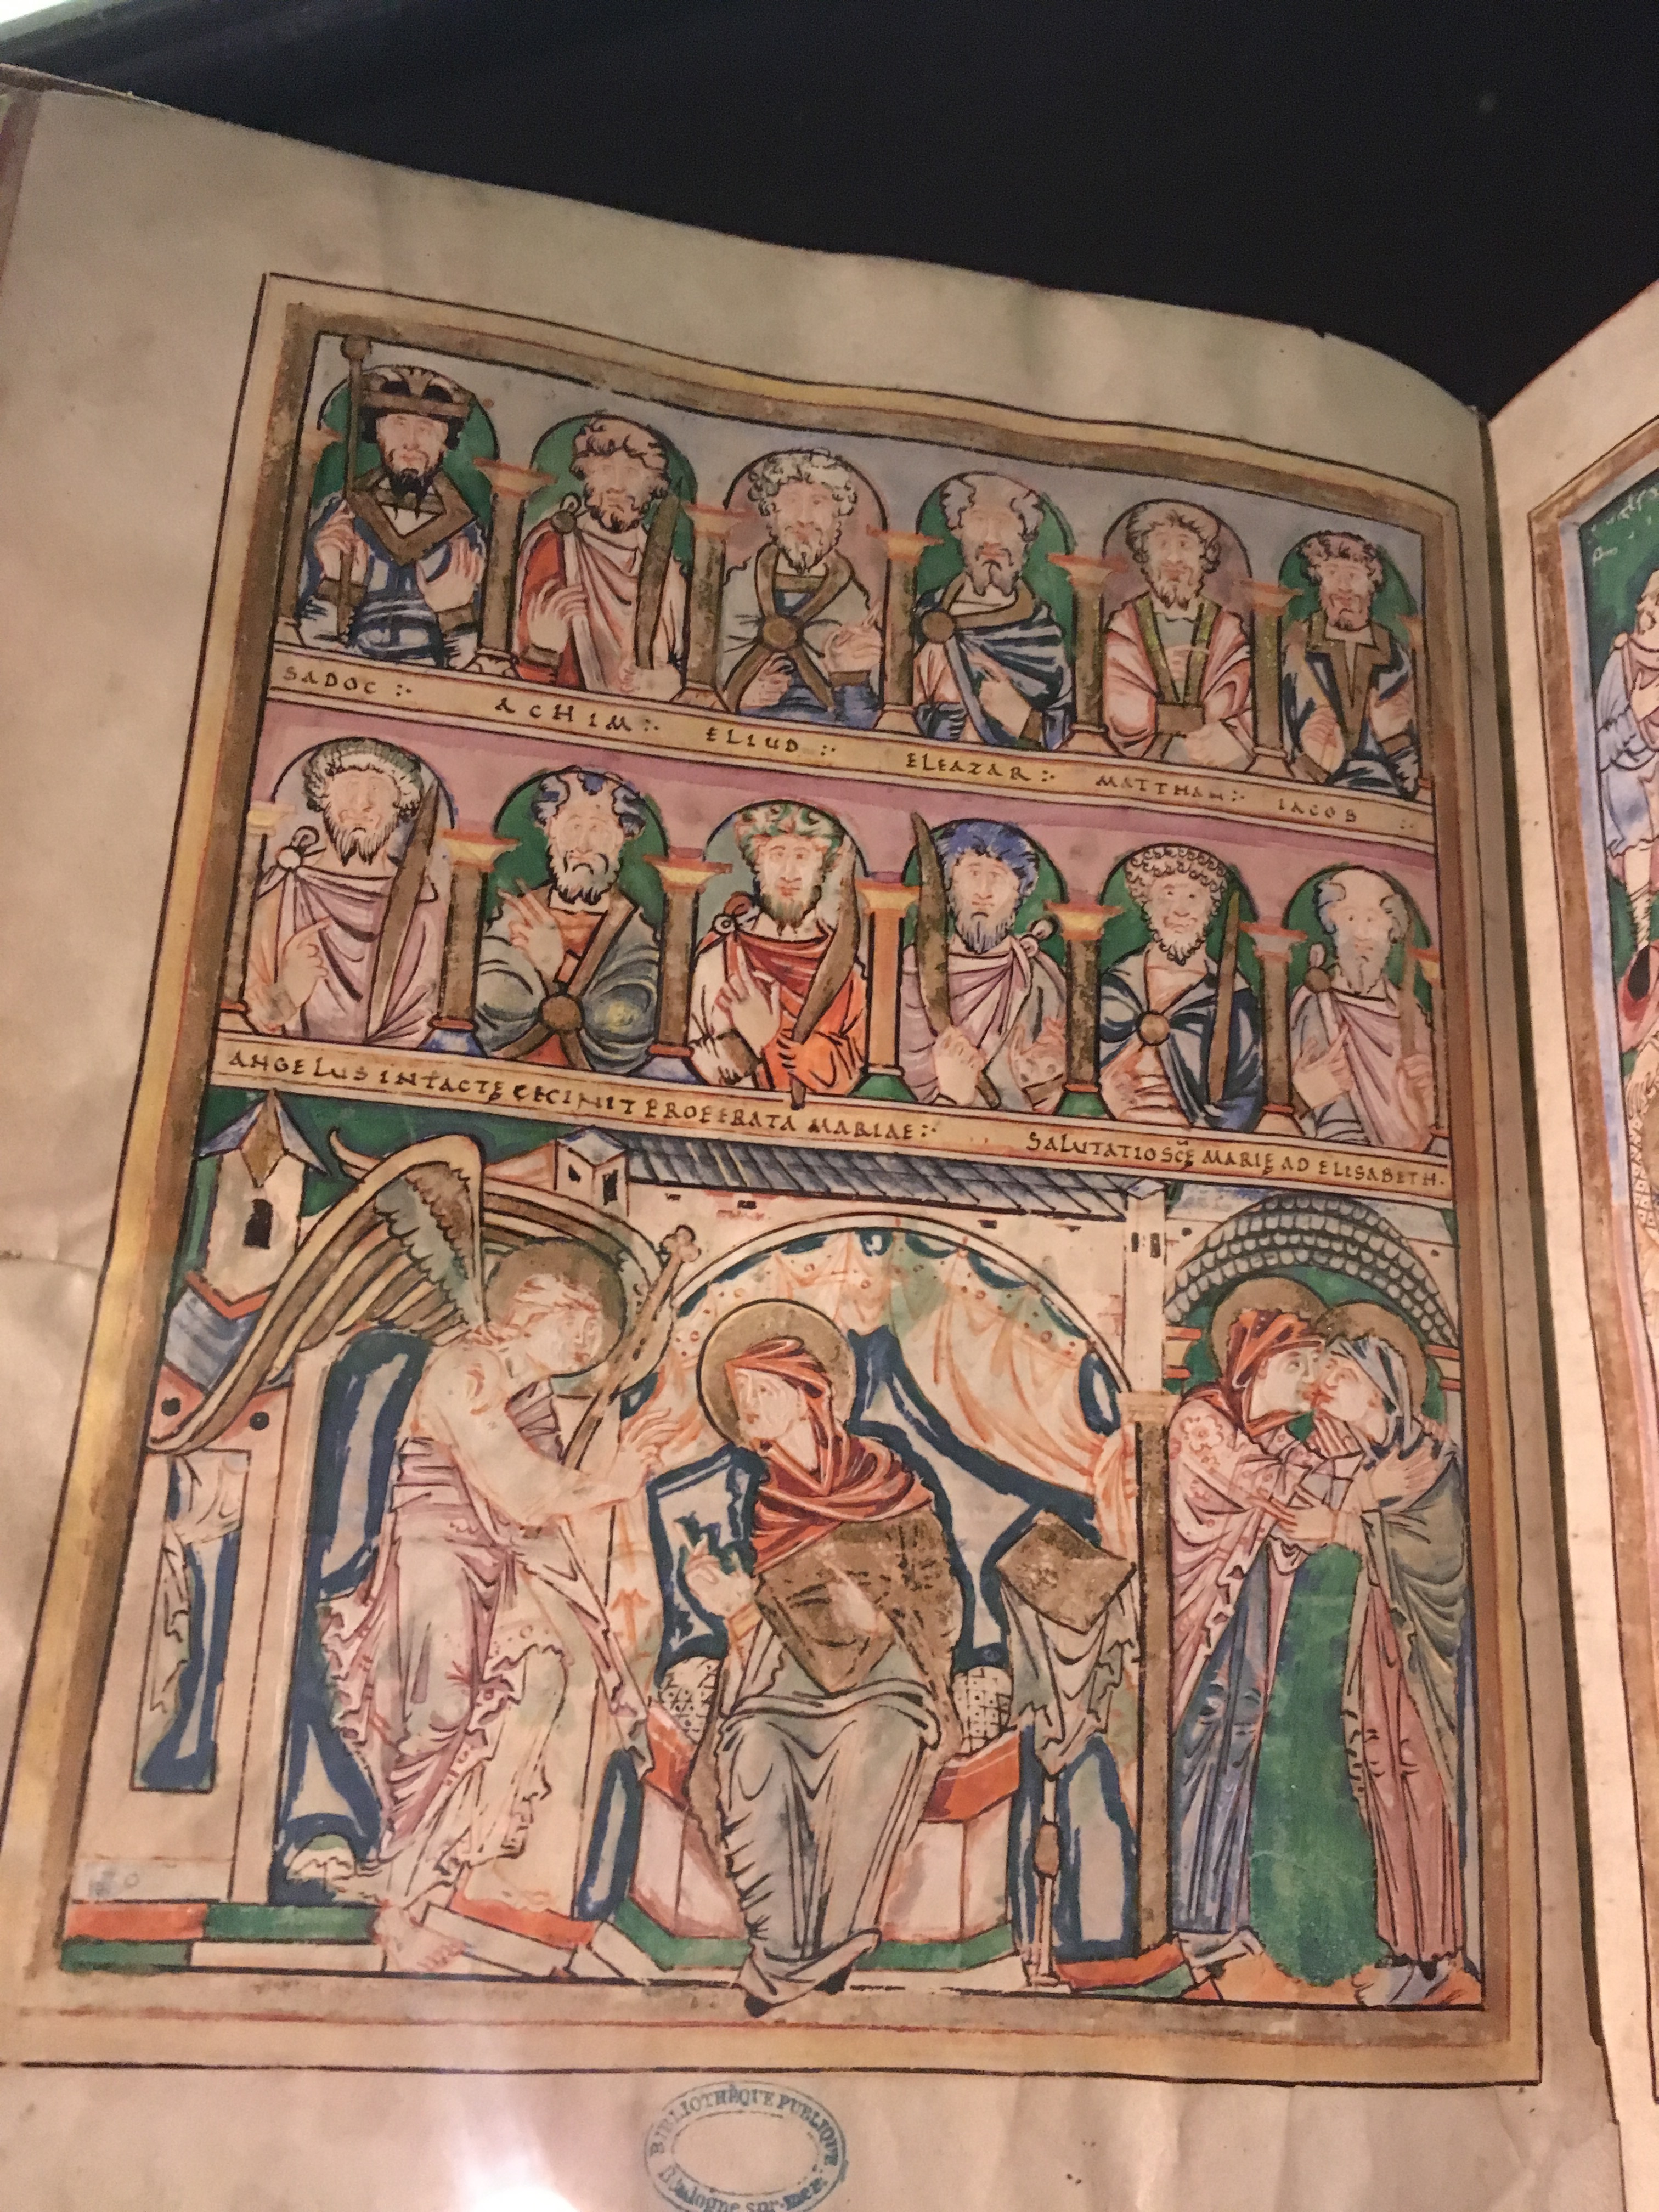 SADOC :· ACHIM :· ELIUD :· ELEAZAR :· MATTHAN :· IACOB :·
ANGELUS INTACTĘ CECINIT PROEFRATA MARIAE :· SALUTATIO SCĘ MARIĘ AD ELISABETH·
BIBLIOTHÈQUE PUBLIQUE
Boulogne-sur-mer